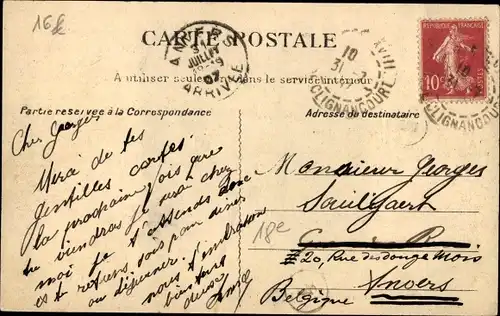 16£
CARTE POSTALE
ANVERS
JUILLET
07
ARRIVÉE
10
31
CLIGNANCOURT
XVIII
RÉPUBLIQUE FRANÇAISE
10
POSTES
CLIGNANCOURT
A utiliser seulement dans le service intérieur
Partie réservée à la Correspondance
Adresse du destinataire
Cher Georges
Merci de tes
gentilles cartes.
la prochaine fois que
tu viendras je serai chez
moi je t'attends donc
et te retiens pour diner
ou déjeuner.
nous t'embrassons
bien tous
Monsieur Georges
18e
20, Rue des douze Mois
Anvers
Belgique